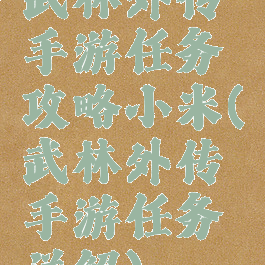 武林外传
手游任务
攻略小米(
武林外传
手游任务
详解)